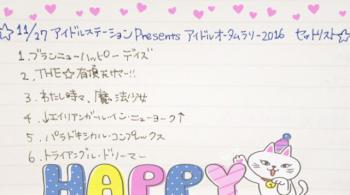 ☆11/27 アイドルステーション Presents アイドルオータムラリー2016 セットリスト☆
1. ブランニューハッピーデイズ
2. THE☆有頂天サマー!!
3. わたし時々、魔法少女
4. ↓エイリアンガール・イン・ニューヨーク↑
5. パラドキシカル・コンプレックス
6. トライアングル・ドリーマー
HAPPY